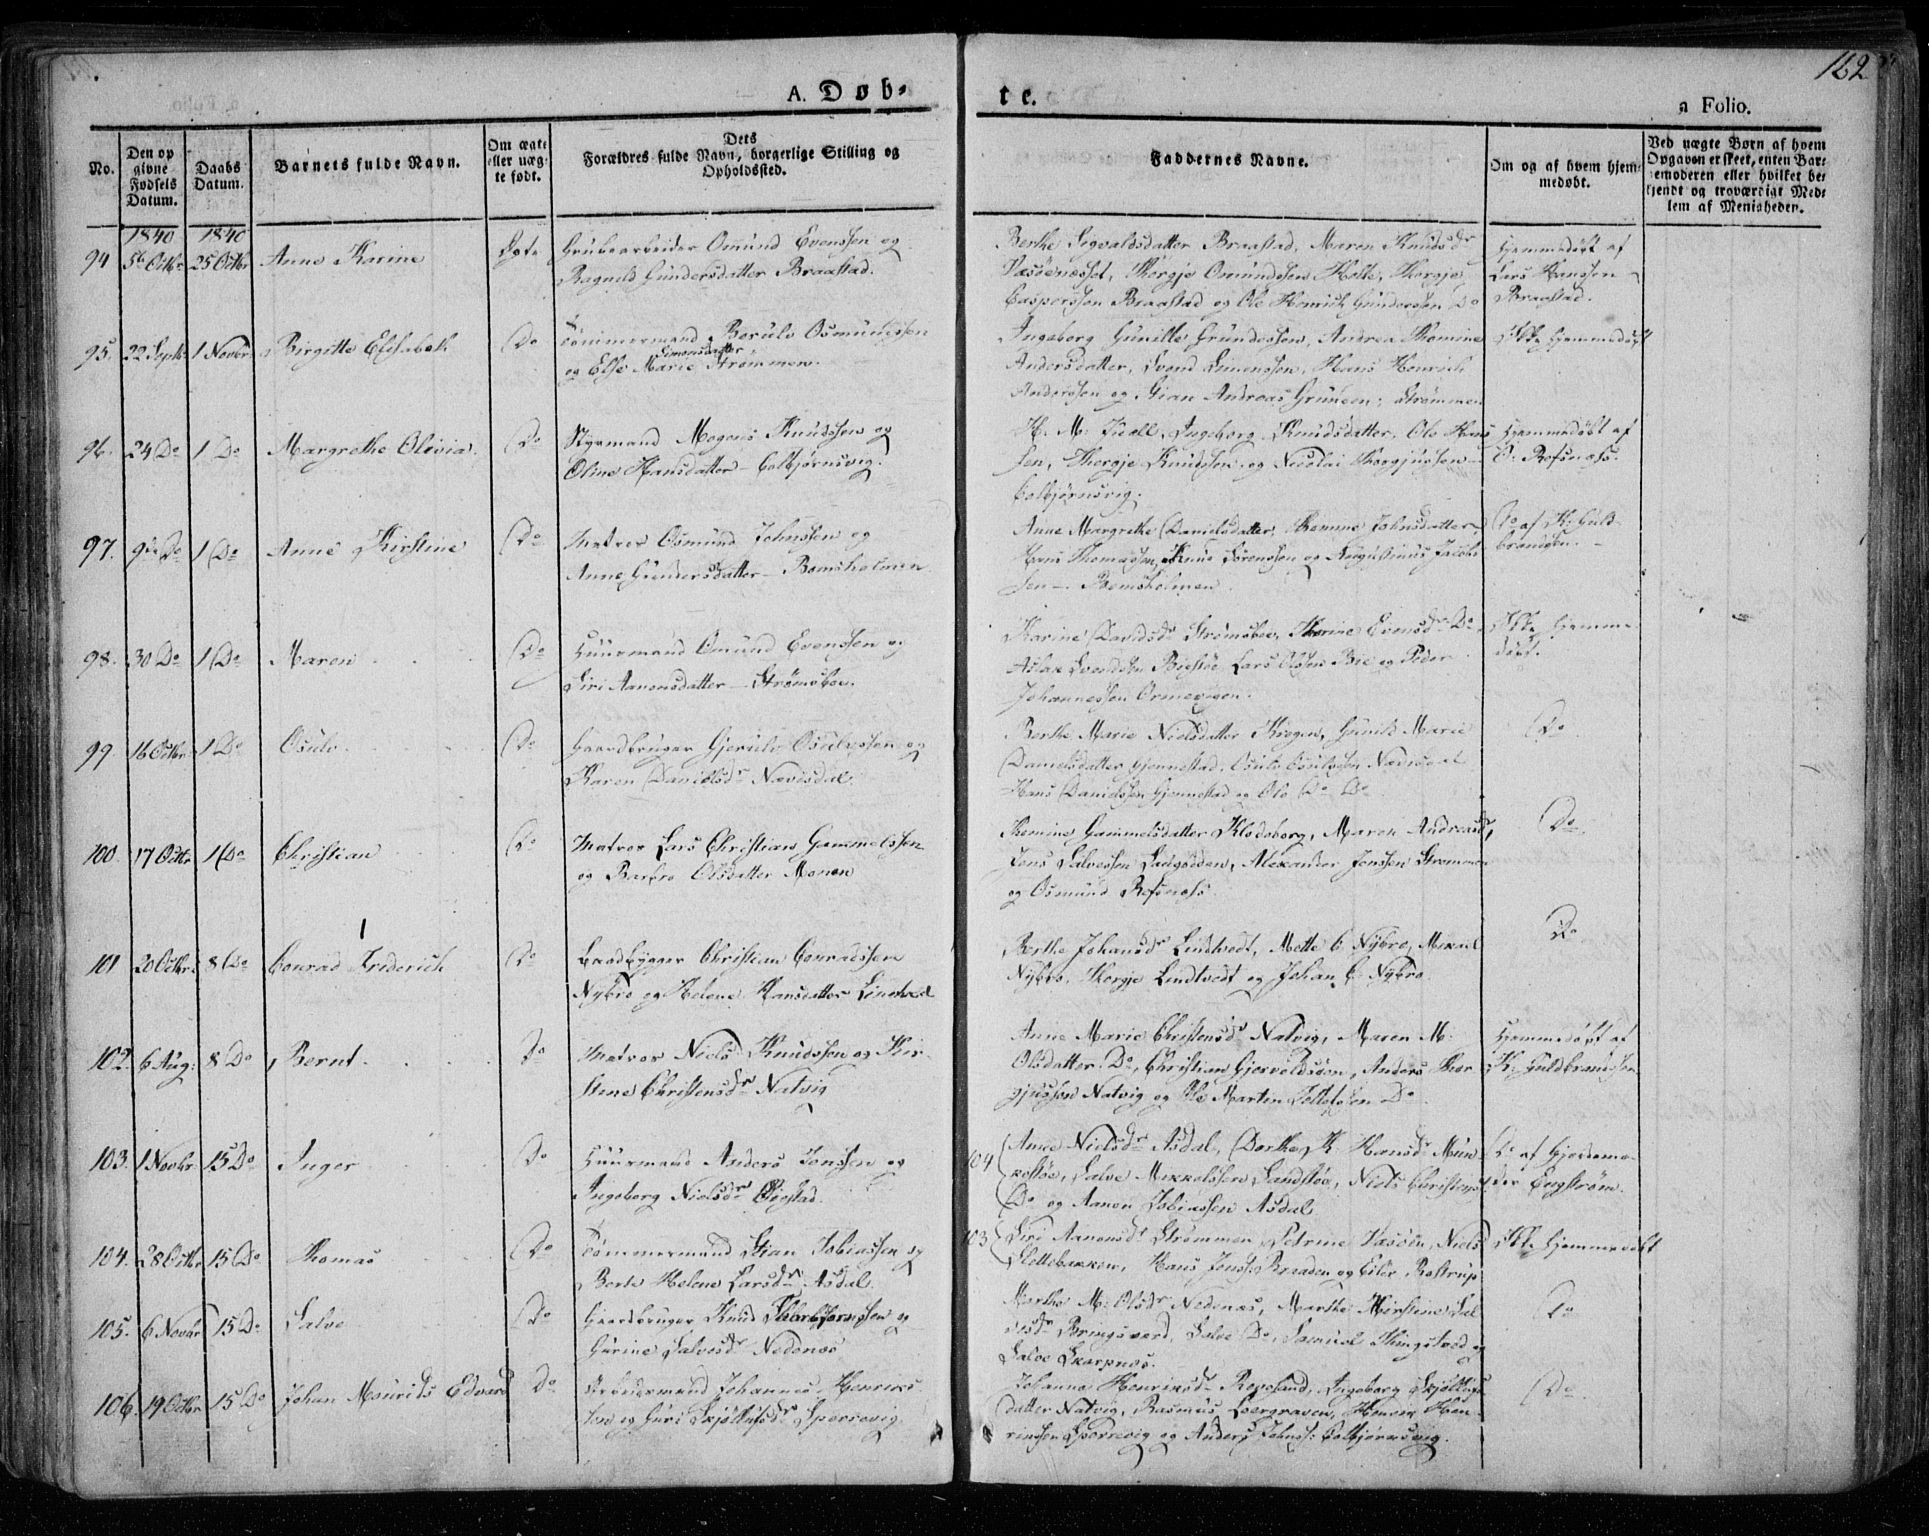 162
A. Døb-
te.
a Folio.
No.
Den op
givne
Fødsels
Datum.
Daabs
Datum.
Barnets fulde Navn.
Om ægte
eller uæg
te født.
Dets
Forældres fulde Navn, borgerlige Stilling og
Opholdssted.
Faddernes Navne.
Om og af hvem hjem-
medøbt.
Ved uægte Børn af hvem
Opgaven er skeet, enten Bar-
nemoderen eller hvilket be-
kjendt og troværdigt Med-
lem af Menigheden.
1840 1840
94 5te Octbr 25 Octbr Anne Karine Ægte Grubearbeider Omund Evensen og
Ragnild Gundersdatter Braastad.
Berthe Sigvaldsdatter Braastad, Maren Knudsdr
Væsøenesset, Thergje Omundssen Holte, Thorgje
Caspersen Braastad og Ole Henrich Gundersen Do
Hjemmedøbt af
Lars Hanssen
Braastad.
95. 22 Septbr 1 Novbr Birgitte Elisabeth Do Tømmermand Berulv Osmundssen
og Else Marie Simonsdatter Strømmen.
Ingeborg Gunille Grundesen, Andrea Thomine
Andersdatter, Svend Simonssen, Hans Henrich
Anderssen og Stian Andreas Grundesen, Strømmen
Ikke Hjemmedøbt
96. 24 Do 1 Do Margrethe Olivia. Do Styrmand Mogens Knudssen og
Oline Hansdatter - Colbjørnsvig.
H. M. Ingeborg Knudsdatter, Ole Hans
sen, Thergje Knudssen og Nicolai Thorgjussen
Colbjørnsvig.
Hjemmedøbt af
O. Refsnæs.
97. 9de Do 1 Do Anne Kirstine Do Matros Osmund Johnssen og
Anne Gundersdatter - Bomsholmen
Anne Margrethe Danielsdatter, Johnsdatter,
Hans Thomassen, Knud Sørenssen og Augustinus Jacob
sen - Bomsholmen.
Do af K. Guld-
brandsen.
98. 30 Do 1 Do Maren Do Huusmand Omund Evenssen og
Siri Aanonsdatter - Strømsboe.
Karine Davidsdr Strømsboe, Thorine Evensdr Do
Aslak Svendsen Biestøe, Lars Olssen Bie og Peder
Johannessen Ormevigen.
Ikke Hjemme-
døbt.
99. 16 Octbr 1 Do Osulv Do Gaardbruger Gjerulv Osulvssen og
Karen Danielsdr Nævisdal.
Berthe Marie Nielsdatter Krogen, Gunild Marie
Danielsdatter Gjennestad, Osulv Osulvssen Nævisdal
Hans Danielssen Gjennestad og Ole Do Do
Do
100. 17 Octbr 1 Do Christian Do Matros Lars Christian Gammelssen
og Barbro Olsdatter Monen
Themine Gammelsdatter Klodeborg, Maren Andreasdr,
Jens Salvessen Langsæden, Alexander Jenssen Strømmen
og Osmund Refsnæs.
Do
101 20 Octbr 8 Do Conrad Frederich Do Baadbygger Christian Conradssen
Nybro og Helene Hansdatter Lindtved
Berthe Johansdr Lindtvedt, Mette C. Nybro, Mikael
Nybro, Thorgje Lindtvedt og Johan C. Nybro.
Do
102. 6 Aug: 8 Do Bernt. Do Matros Niels Knudssen og Kir-
stine Christensdr Natvig
Anne Marie Christensdr Natvig, Maren M.
Olsdatter Do, Christian Gjervoldssøn, Anders Ther
gjussen Natvig og Ole Martin Do
Hjemmedøbt af
K. Guldbrandsen.
103. 1 Novbr. 15 Do Inger Do Huusmand Anders Jenssen og
Ingeborg Nielsdr Øiestad.
104 Anne Nielsdr Asdal, Dorthe K. Hansdr
Salve Mikkelssen Sandstøe, Niels Christenss.
Do og Aanon Tobiassen Asdal.
Do af Gjordemo-
der Engstrøm.
104. 28 Octbr 15 Do Thomas Do Tømmermand Stian Tobiassen og
Berte Helene Larsdr Asdal
103 Siri Aanonsdr Strømmen, Petrine Væsøen, Niels
Slettebakken, Hans Jenss: Braaden og Eiler Rostrup
Ikke Hjemmedøbt
105. 6 Novbr 15 Do Salve Do Gaardbruger Knud og
Gurine Salvesdr Nedenæs
Marthe M. Olsdr Nedenæs, Marthe Kirstine Sal
vesdr Bringsværd, Salve Do, Samuel Thingstved og
Salve Skarpnæs.
Do
106. 19 Octbr 15 Do Johan Mouritds Edvard Do Arbeidsmand Johannes Henriks
sen og Guri Skjøttisdr Sporrevig.
Johanne Henriksdr Ingeborg Skjøttis
datter Natvig, Rasmus Henrik Hen
rikssen Sporrevig og Anders Johnss: Colbjørnsvig.
Do